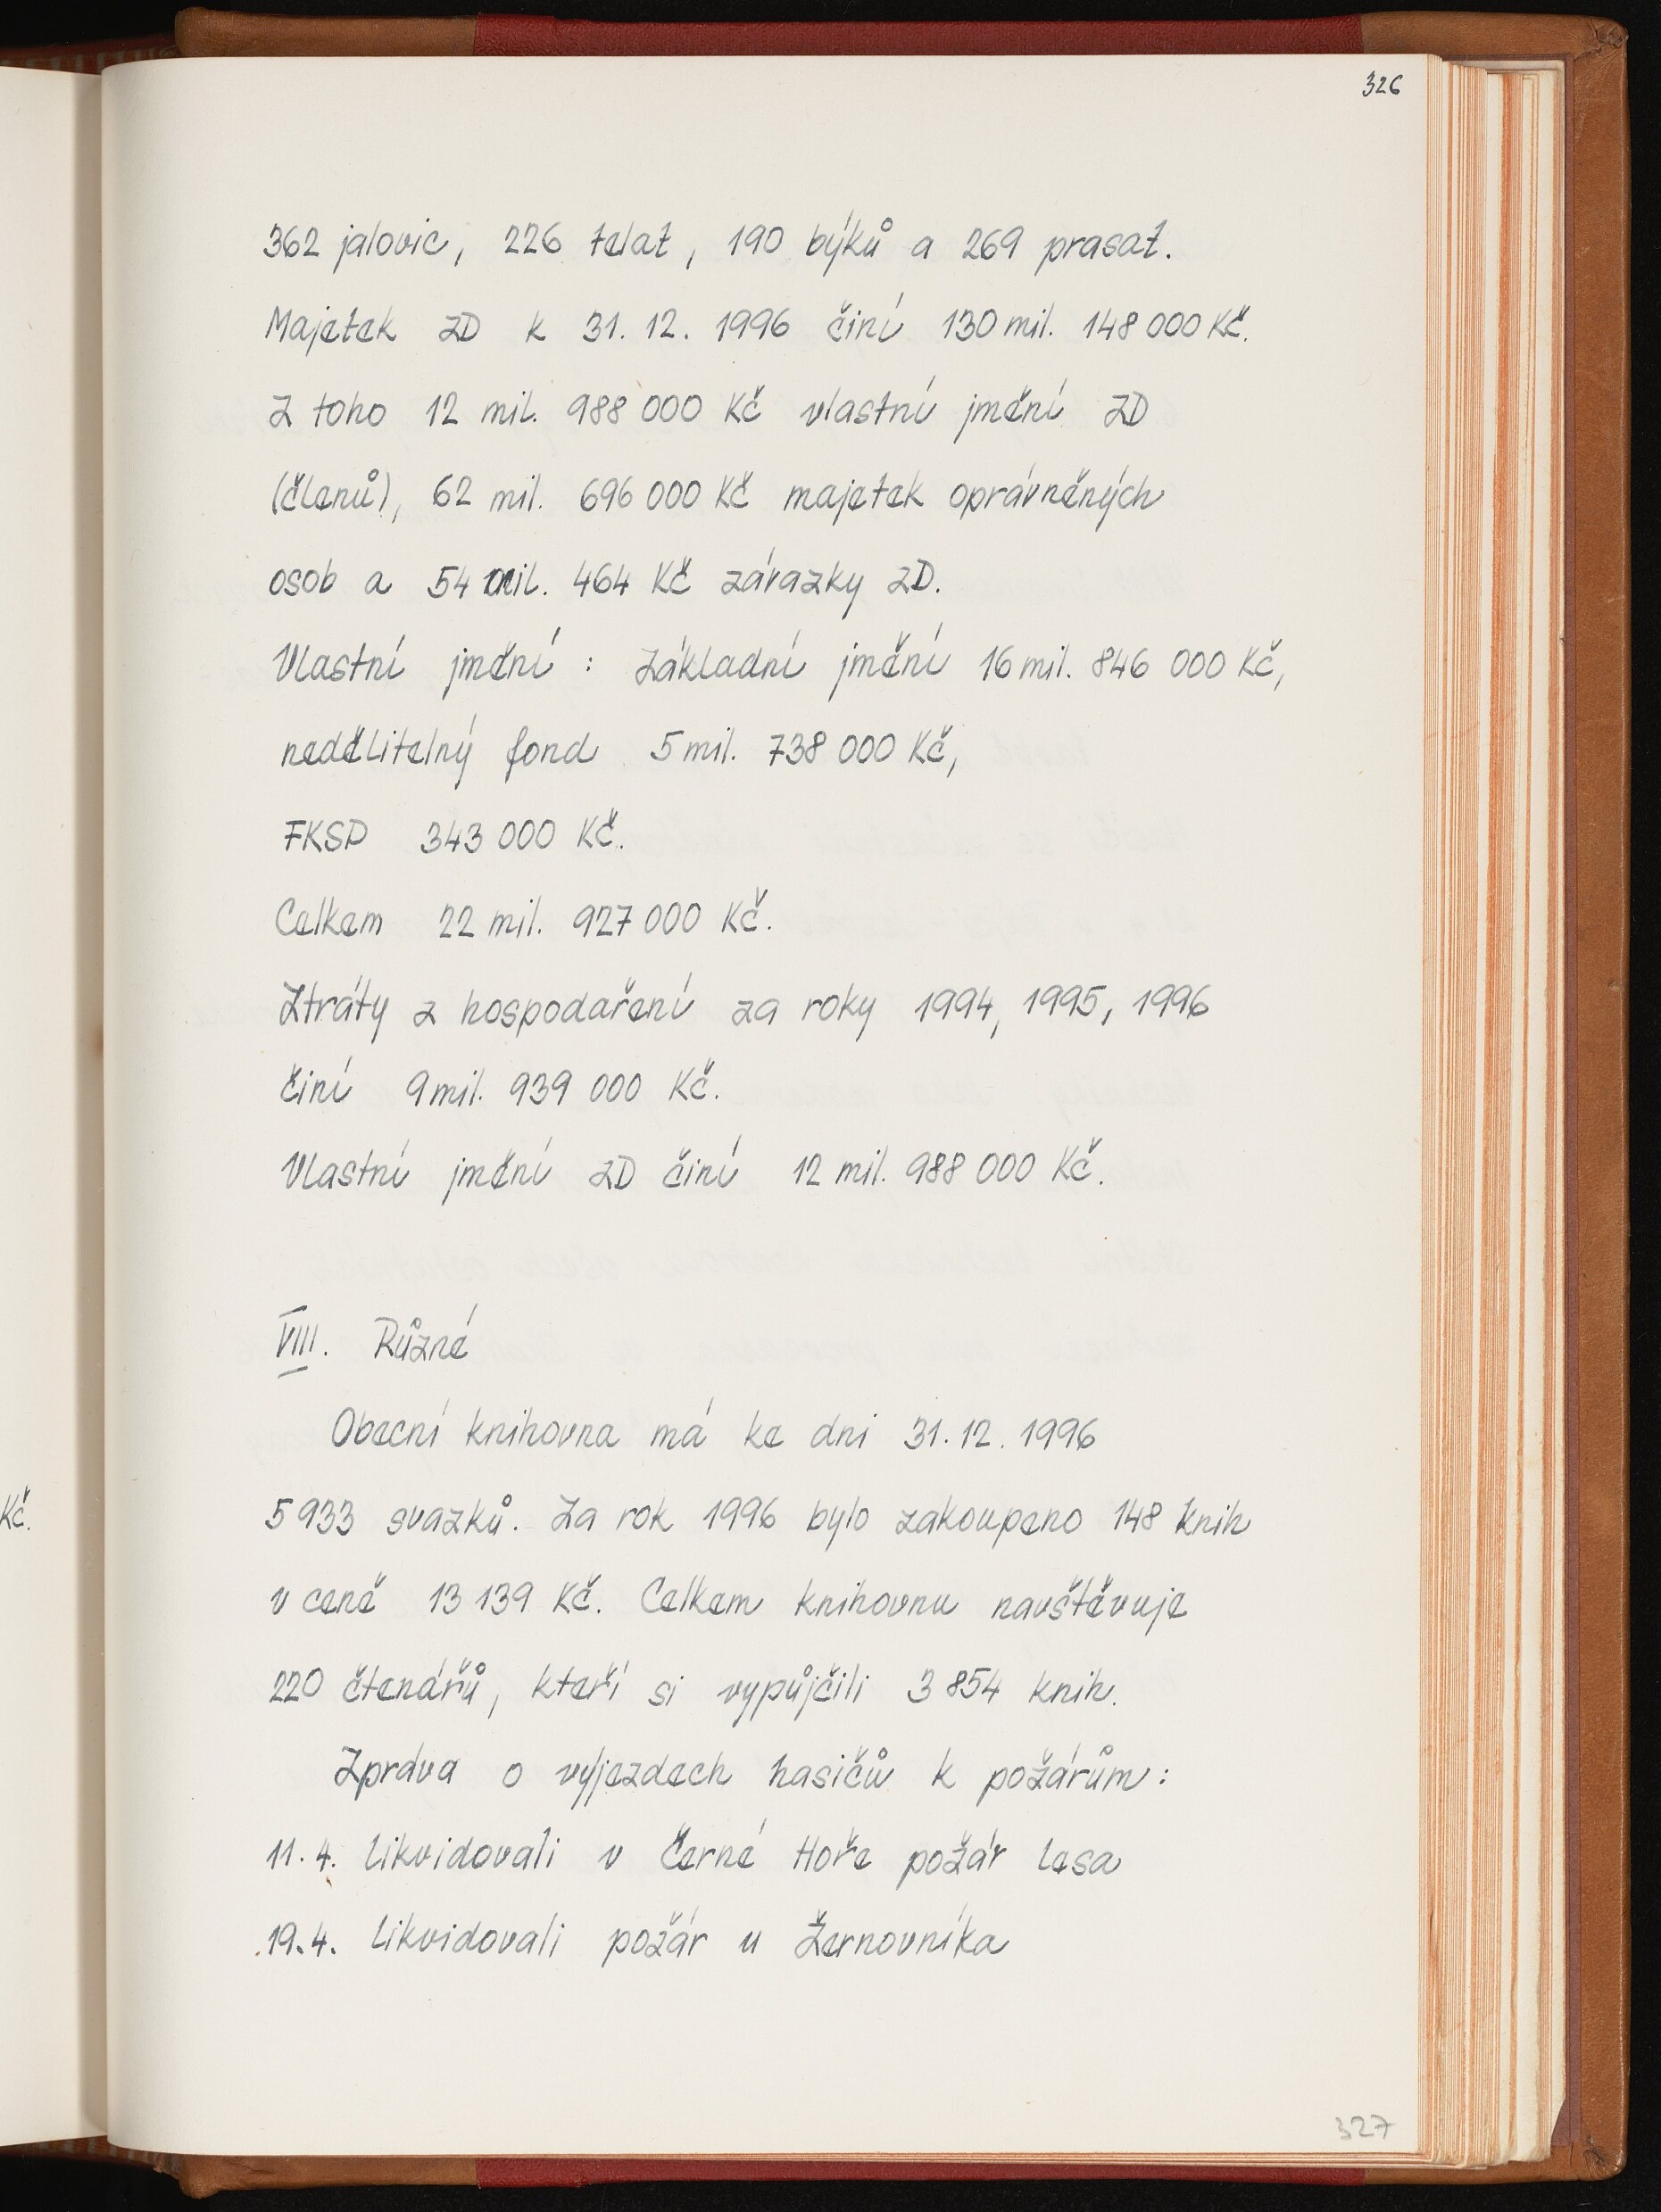 326
362 jalovic, 226 telat, 190 býků a 269 prasat.
Majetek ZD k 31. 12. 1996 činí 130 mil. 148 000 Kč.
Z toho 12 mil. 988 000 Kč vlastní jmění ZD
(členů), 62 mil. 696 000 Kč majetek oprávněných
osob a 54 mil. 464 Kč závazky ZD.
Vlastní jmění : základní jmění 16 mil. 846 000 Kč,
nedělitelný fond 5 mil. 738 000 Kč,
FKSP 343 000 Kč.
Celkem 22 mil. 927 000 Kč.
Ztráty z hospodaření za roky 1994, 1995, 1996
činí 9 mil. 939 000 Kč.
Vlastní jmění ZD činí 12 mil. 988 000 Kč.
VIII. Různé
Obecní knihovna má ke dni 31. 12. 1996
Kč.
5 933 svazků. Za rok 1996 bylo zakoupeno 148 knih
v ceně 13 139 Kč. Celkem knihovnu navštěvuje
220 čtenářů, kteří si vypůjčili 3 854 knih.
Zpráva o vyjezdech hasičů k požárům :
11. 4. likvidovali v Černé Hoře požár lesa
19. 4. likvidovali požár u Žernovníka
327